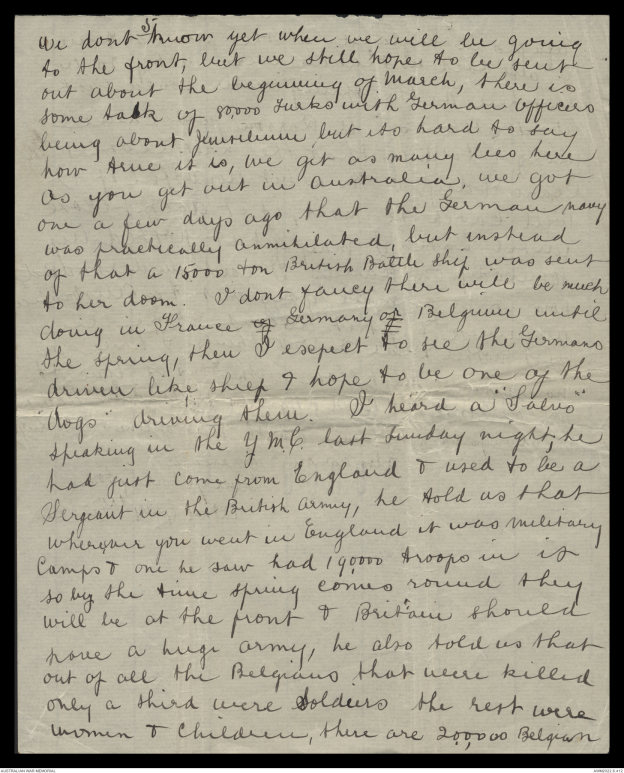 5/
we dont know yet when we will be going
to the front, but we still hope to be sent
out about the beginning of March, there is
some talk of 80,000 Turks with German Officers
being about Jerusilium, but its hard to say
how true it is, we get as many lies here
as you get out in Australia, we got
one a few days ago that the German navy
was practically annihilated, but instead
of that a 15000 ton British Battle Ship was sent
to her doom. I dont fancy there will be much
doing in France or Germany or Belgium until
the spring, then I expect to see the Germans
driven like sheep & hope to be one of the
"dogs" driving them. I heard a "Salvo"
speaking in the Y.M.C. last Sunday night, he
had just come from England & used to be a
Sergeant in the British Army, he told us that
wherever you went in England it was military
Camps & one he saw had 190000 troops in it
so by the time spring comes round they
will be at the front & Britain should
have a huge army, he also told us that
out of all the Belgians that were killed
only a third were Soldiers the rest were
women & Children, there are 200,000 Belgian
AUSTRALIAN WAR MEMORIAL